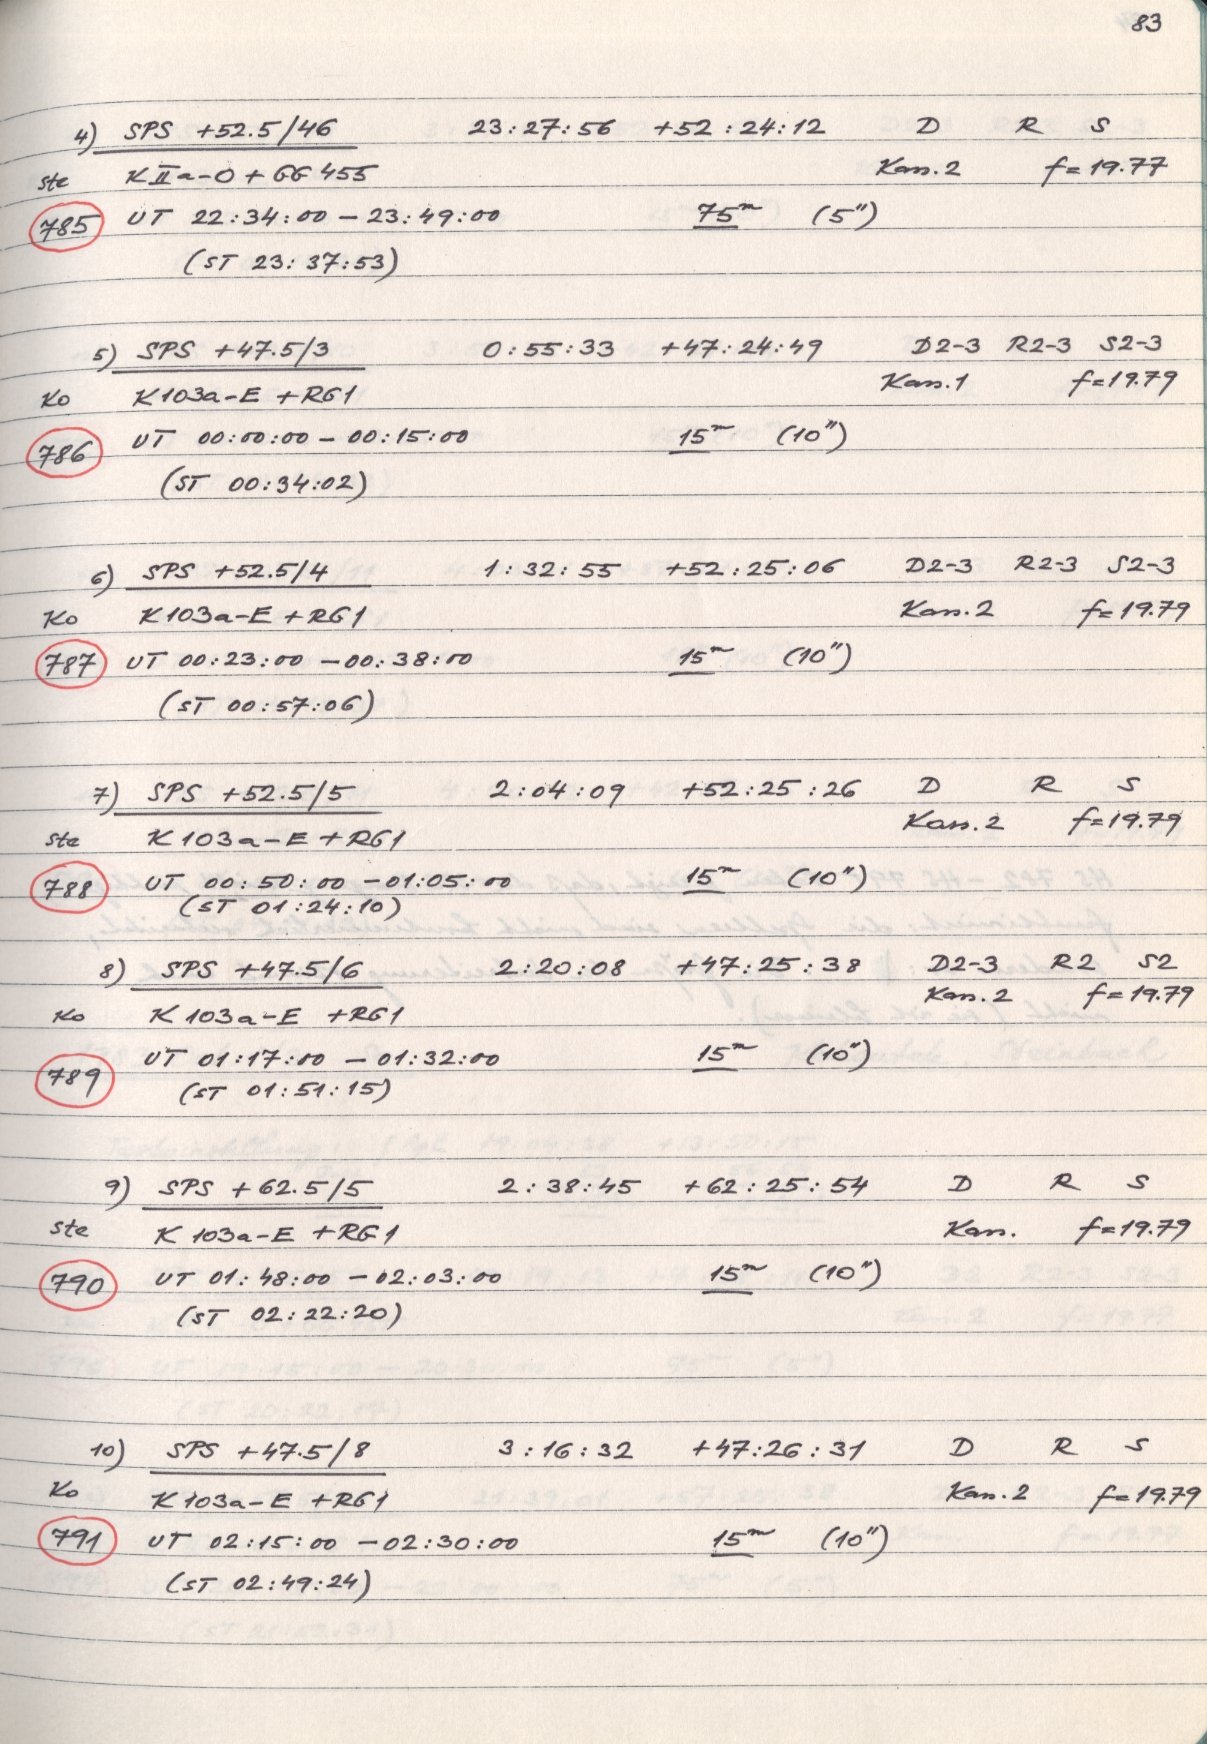 83
4) SPS +52.5/46 23:27:56 +52:24:12 D R S
Ste K II a-O + GG 455 Kan.2 f=19.77
785 UT 22:34:00 – 23:49:00 75m (5")
(ST 23:37:53)
5) SPS +47.5/3 0:55:33 +47:24:49 D2-3 R2-3 S2-3
Ko K103a-E + RG1 Kan.1 f=19.79
786 UT 00:00:00 – 00:15:00 15m (10")
(ST 00:34:02)
6) SPS +52.5/4 1:32:55 +52:25:06 D2-3 R2-3 S2-3
Ko K103a-E + RG1 Kan.2 f=19.79
787 UT 00:23:00 – 00:38:00 15m (10")
(ST 00:57:06)
7) SPS +52.5/5 2:04:09 +52:25:26 D R S
Ste K103a-E + RG1 Kan.2 f=19.79
788 UT 00:50:00 – 01:05:00 15m (10")
(ST 01:24:10)
8) SPS +47.5/6 2:20:08 +47:25:38 D2-3 R2 S2
Ko K103a-E + RG1 Kan.2 f=19.79
789 UT 01:17:00 – 01:32:00 15m (10")
(ST 01:51:15)
9) SPS +62.5/5 2:38:45 +62:25:54 D R S
Ste K103a-E + RG1 Kan. f=19.79
790 UT 01:48:00 – 02:03:00 15m (10")
(ST 02:22:20)
10) SPS +47.5/8 3:16:32 +47:26:31 D R S
Ko K103a-E + RG1 Kan.2 f=19.79
791 UT 02:15:00 – 02:30:00 15m (10")
(ST 02:49:24)